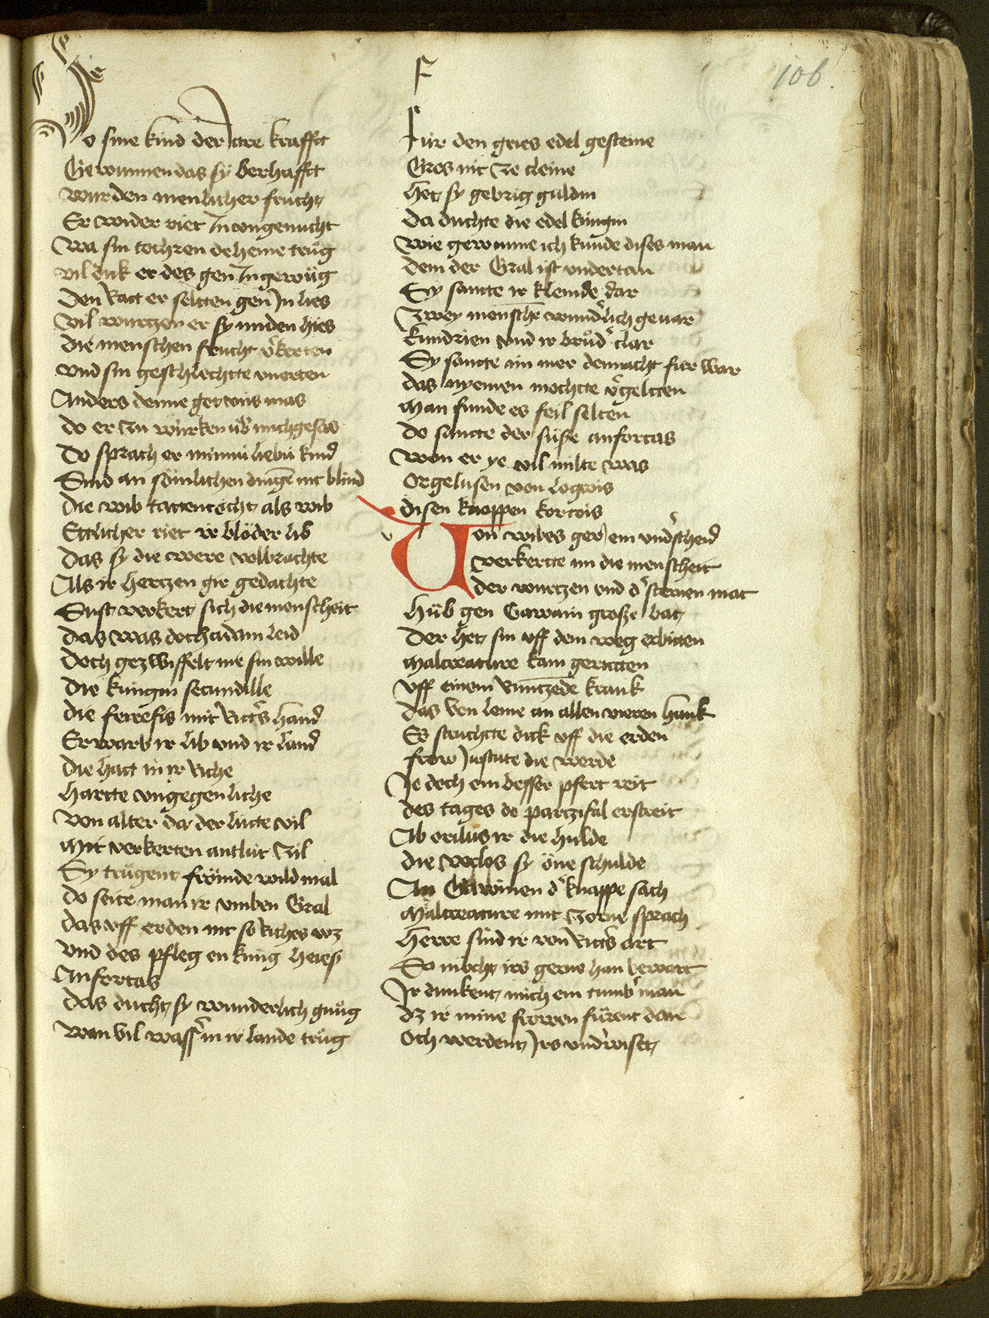 106.
F
Wo sine kind der Jare krafft
Gewunnen das sy berhafft
wurden menlicher frucht
Er wider riet In vngenucht
Wa sin tochtren deheine trůg
vil duk er des gen In gewůg
Den Ratt er seltten gen Jn lies
Vil wurtzen er sy miden hies
die menschen frucht v'kerten
vnd sin geschlechtte vnerten
Anders denne got vns mas
do er zu würken úb' mich gesas
Do sprach er minnú liebú kind
Sind an sömlichen dingē nit blind
die wib tattent echt als wib
Ettlicher riet ir blöder lib
Das sy die were volbrachte
Als ir hertzen gir gedachte
Sust verkert sich die menscheit
das was doch adam leid
Doch gezwiffelt nie sin wille
die kúngin secundille
die ferefis mit Ritt's hand
Erwarb ir lib vnd ir land
die hatt in ir Riche
Hartte vngegenliche
Von alter dar der lútte vil
Mit verkerten antlút zil
Sy trůgent frömde wild mal
do seite man ir vmben Gral
das vff erden nit so Riches wz
vnd des pfleg en kúng heies
Anfortas
das ducht sy wunderlich gnůg
wan vil wass' in ir lande trůg
Fúr den gries edel gesteine
Gros nit ze cleine
Het sy gebirg guldin
Da duchte die edel kúngin
Wie gewinne ich kúnde dises man
dem der Gral ist vndertan
Sy sante ir kleinde dar
Zwey mensche wund'lich gevar
kundrien vnd ir brůd' clar
Sy sante im mer dennacht fúr war
das nyemen mochtte v'geltten
Man funde es feil selten
do sante der súße anfortas
Won er ye vil milte was
Orgelusen von logrois
disen knappen kortois
Von wibes ger ein vnd'scheid
verkerte im die menscheit
der wurtzen vnd d' sternen mac
Hůb gen Gawain große bat
Der het sin vff dem weg erbitten
Malcreature kam geritten
vff einem Runtzede krank
das von leme an allen vieren hank
Es struchtte dick vff die erden
frow Jeschute die werde
Je doch ein besser pfert reit
des tages do partzifal erstreit
Ab orilus ir die hulde
die vorlos sy öne schulde
An Gawinen d' knappe sach
Malcreature mit zorne sprach
Herre sind ir von Ritt's art
So mocht irs gerne han bewart
Ir dunkent mich ein tumb' man
dz ir mine frowen fůrent dan
Och werdent Jrs vnd'wiset